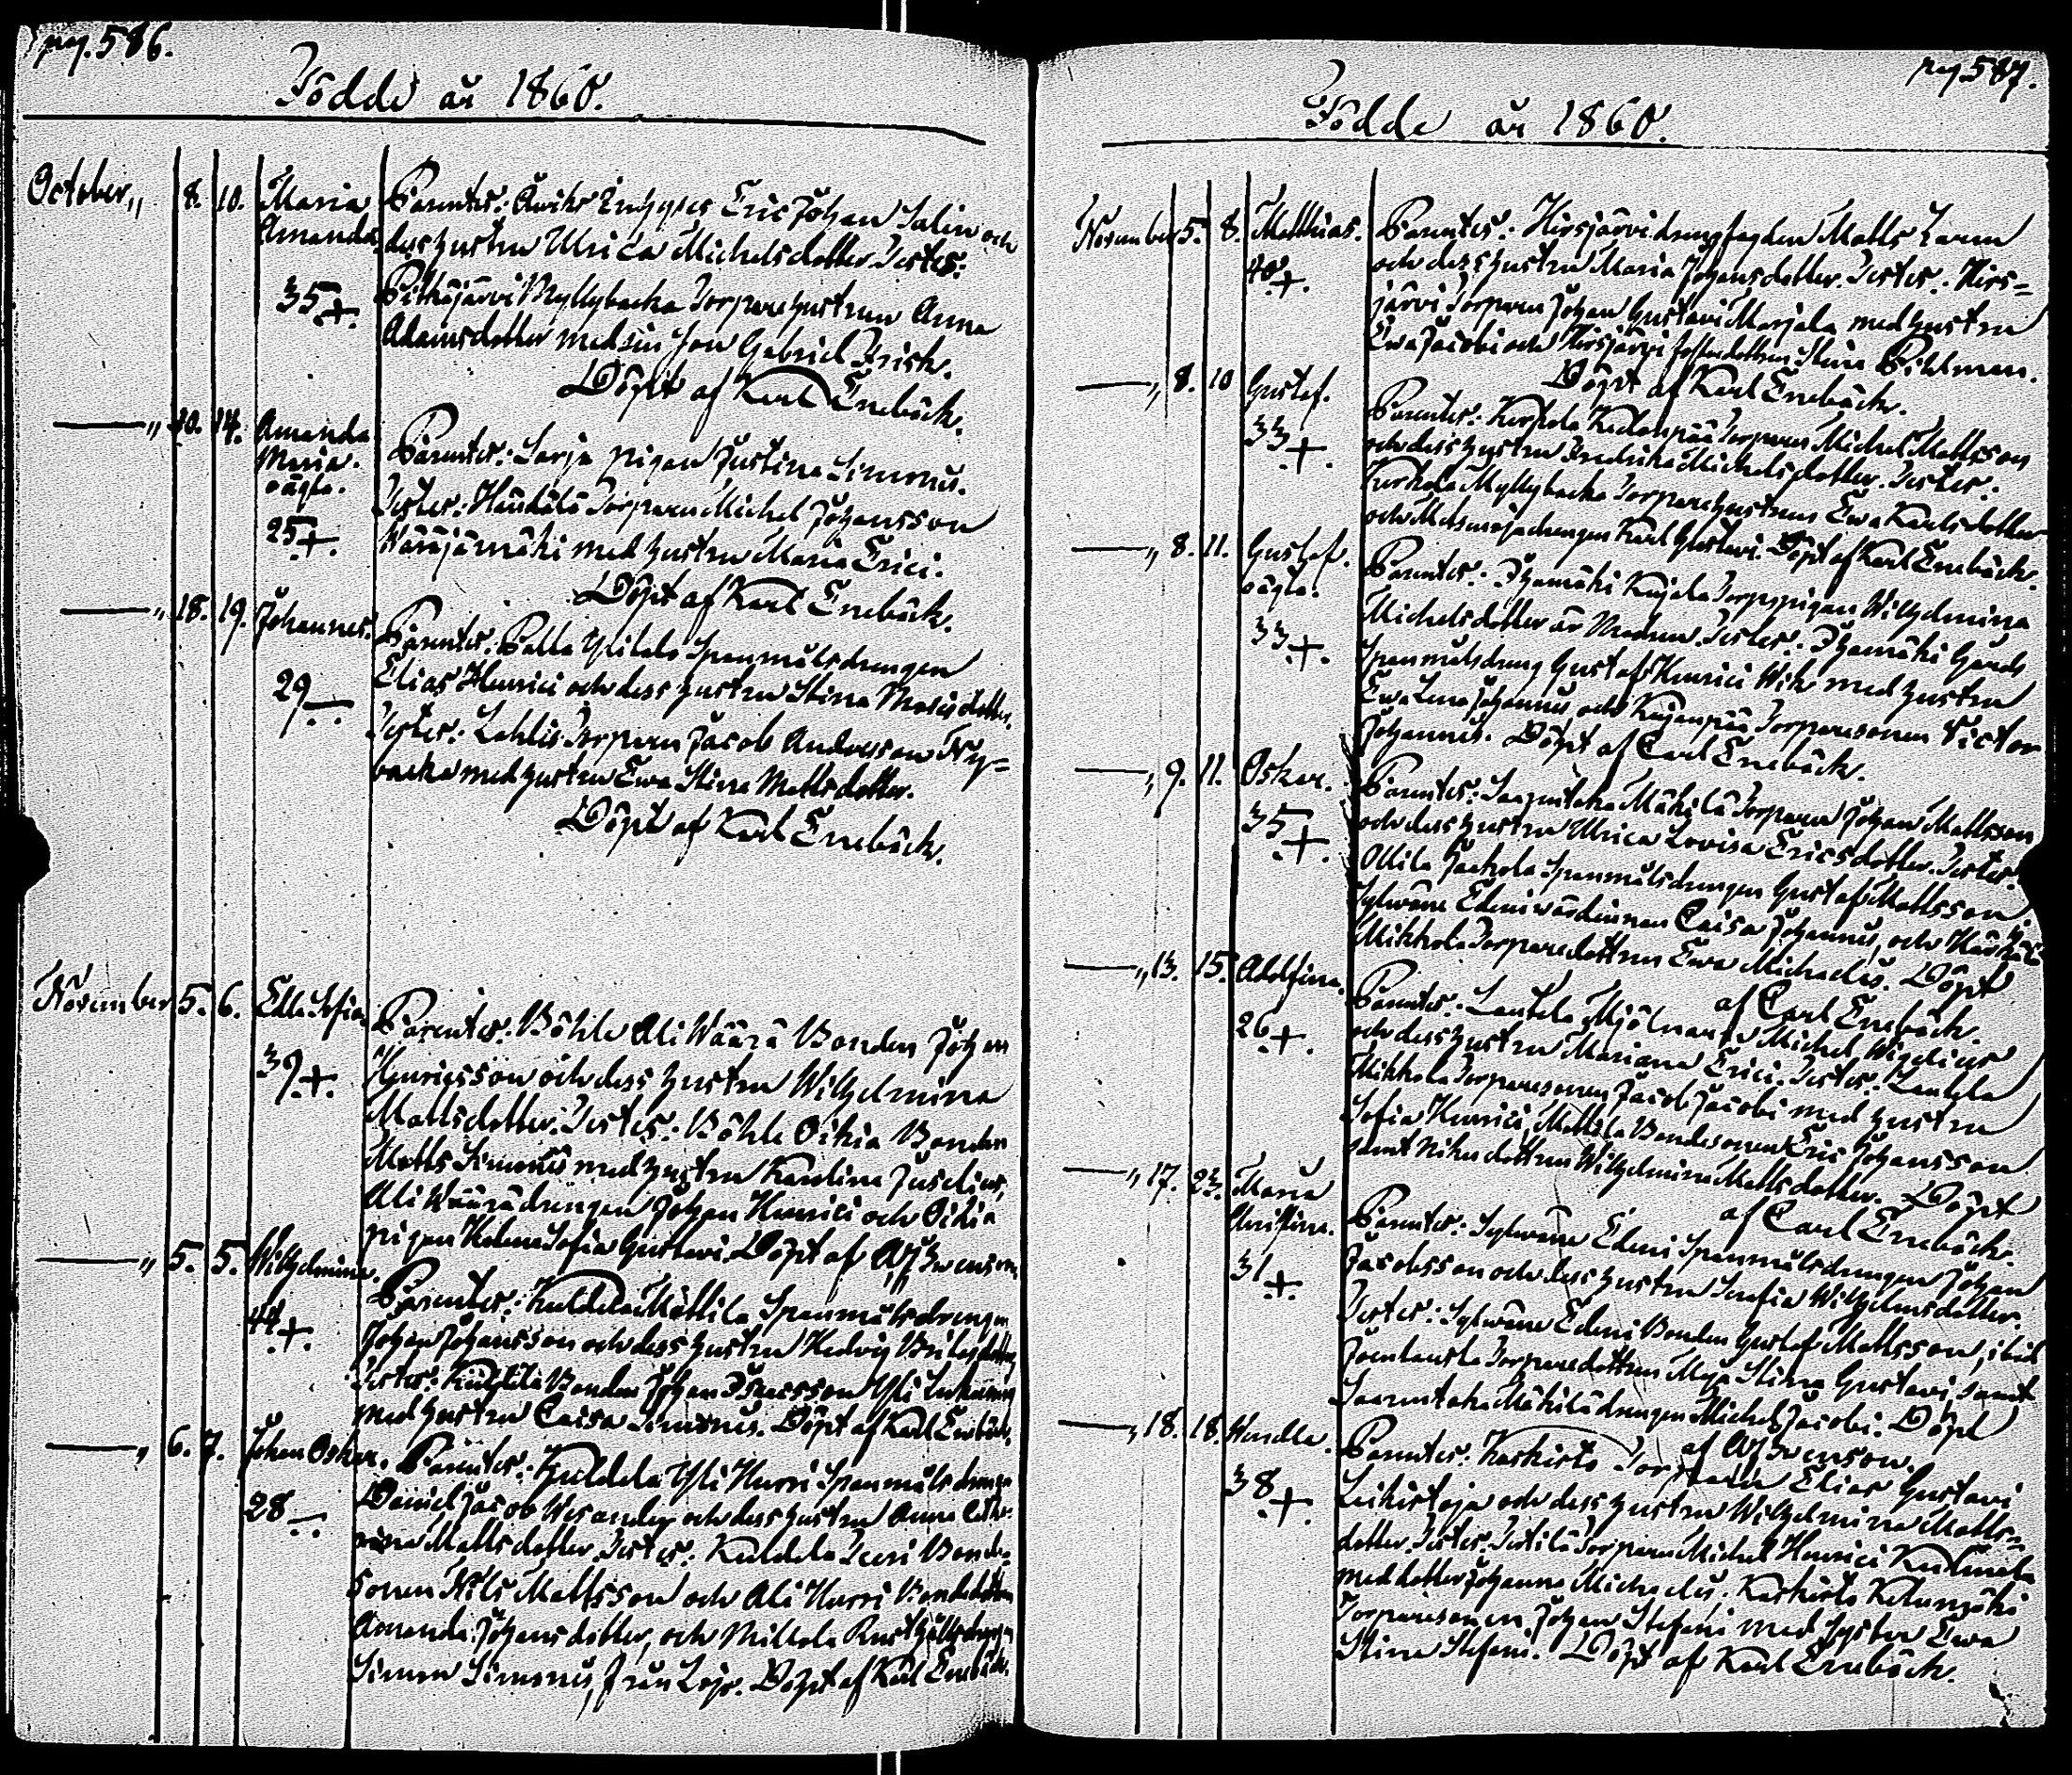 pag. 586.
Födde år 1860.
October „ 8. 10. Maria Amanda 35+. Parentes: Eric Johan Salin och
dess hustru Ulrica Michelsdotter. Testes:
Pitkäjärvi Myllybacka Torparehustrun Anna
Adamsdotter med sin Son Gabriel Frisk.
Döpt af Karl Enebäck.
— „ 10. 14. Amanda Maria. oägta. 25+. Parentes: Sarja pigan Justina Simonis.
Testes: Torparen Michel Johansson
med hustru Maria Erici.
Döpt af Karl Enebäck.
— „ 18. 19. Johannes. 29— Parentes: Palla Ylitalo Spanmålsdrängen
Elias Henrici och dess hustru Stina
Testes: Torparen Jacob Andersson Ny=
backa med hustru Ewa Stina Mattsdotter.
Döpt af Karl Enebäck.
November 5. 6. Edla Sofia. 39+. Parentes: Böhle Ali Wäärä Bonden Johan
Henricsson och dess hustru Wilhelmina
Mattsdotter. Testes: Böhle Oikia Bonden
Matts Simonis med hustru Karolina Juselius,
Ali Wäärä drängen Johan Henrici och Oikia
pigan Helena Sofia Gustavi. Döpt af
— „ 5. 5. Wilhelmina. 44+. Parentes: Kuldela Mattila Spanmålsdrängen
Johan Johansson och dess hustru Hedvig
Testes: Bonden Johan Yli
med hustru Caisa Simonis. Döpt af Karl Enebäck.
— „ 6. 7. Johan Oskar. 28— Parentes: Kuldela Yli Hurri Spanmålsdrängen
Daniel Jacob Wesander och dess hustru Anna Catha-
rina Mattsdotter. Testes: Kuldela Bonde-
sonen Nils Mattsson och Ali Hurri Bondedottren
Amanda Johansdotter, och Millola Rusthållsdrängen
Simon Simonis, från Döpt af Karl Enebäck.
pag 587.
Födde år 1860.
November 5. 8. Matthias. 40+. Parentes: Hirsjärvi Matts
och dess hustru Maria Johansdotter. Testes: Hirs=
järvi Torparen Johan Gustavi Marjala med hustru
Ewa Jacobi och Hirsjärvi Stina Pihlman.
Döpt af Karl Enebäck.
— „ 8. 10 Gustaf. 33+. Parentes: Torparen Michel Mattsson
och dess hustru Fredrika Michelsdotter. Testes:
Kerkola Myllybacka Torparehustrun Ewa Karlsdotter
och drängen Karl Gustavi. Döpt af Karl Enebäck.
— „ 8. 11. Gustaf. oägta. 33+. Parentes: Wilhelmina
Michelsdotter är Modren. Testes:
Spanmålsdräng Gustaf Henrici Wik med hustru
Ewa Lena Johannis, och Torparesonen Victor
Johannis. Döpt af Carl Enebäck.
— „ 9. 11. Oskar. 35+. Parentes: Saarentaka Mäkilä Torparen Johan Mattsson
och dess hustru Ulrica Lovisa Ericsdotter. Testes:
Ollila Jaakola Spanmålsdrängen Gustaf Mattsson,
Sylwäne Edeni wärdinnan Caisa Johannis, och
Mikkola Torparedottren Ewa Michaelis. Döpt
af Carl Enebäck.
— „ 13. 15. Adolfina. 26+. Parentes: Lautela Mjölnaren Michel Wigelius
och dess hustru Mariana Erici. Testes: Lautela
Mikkola Torparesonen Jacob Jacobi med hustru
Sofia Henrici, Mattila Bondesonen Eric Johansson
samt dottren Wilhelmina Mattsdotter. Döpt
af Carl Enebäck.
— „ 17. 23. Maria Christina. 31+. Parentes: Sylwäne Edeni Spanmålsdrängen Johan
Jacobsson och dess hustru Serafia Wilhelmsdotter.
Testes: Sylwäne Edeni Bonden Gustaf Mattsson, ibid
Torparedottren Maja Stina Gustavi, samt
Saarentaka Mäkilä drängen Michel Jacobi. Döpt
af
— „ 18. 18. Wendla. 38+. Parentes: Karkisto Torparen Elias Gustavi
Leikistoja och dess hustru Wilhelmina Matts=
dotter. Testes: Torparen Michel Henrici
med dotter Johanna Michaelis, Karkisto
Torparesonen Johan Stefani med Syster Ewa
Stina Stefani. Döpt af Karl Enebäck.